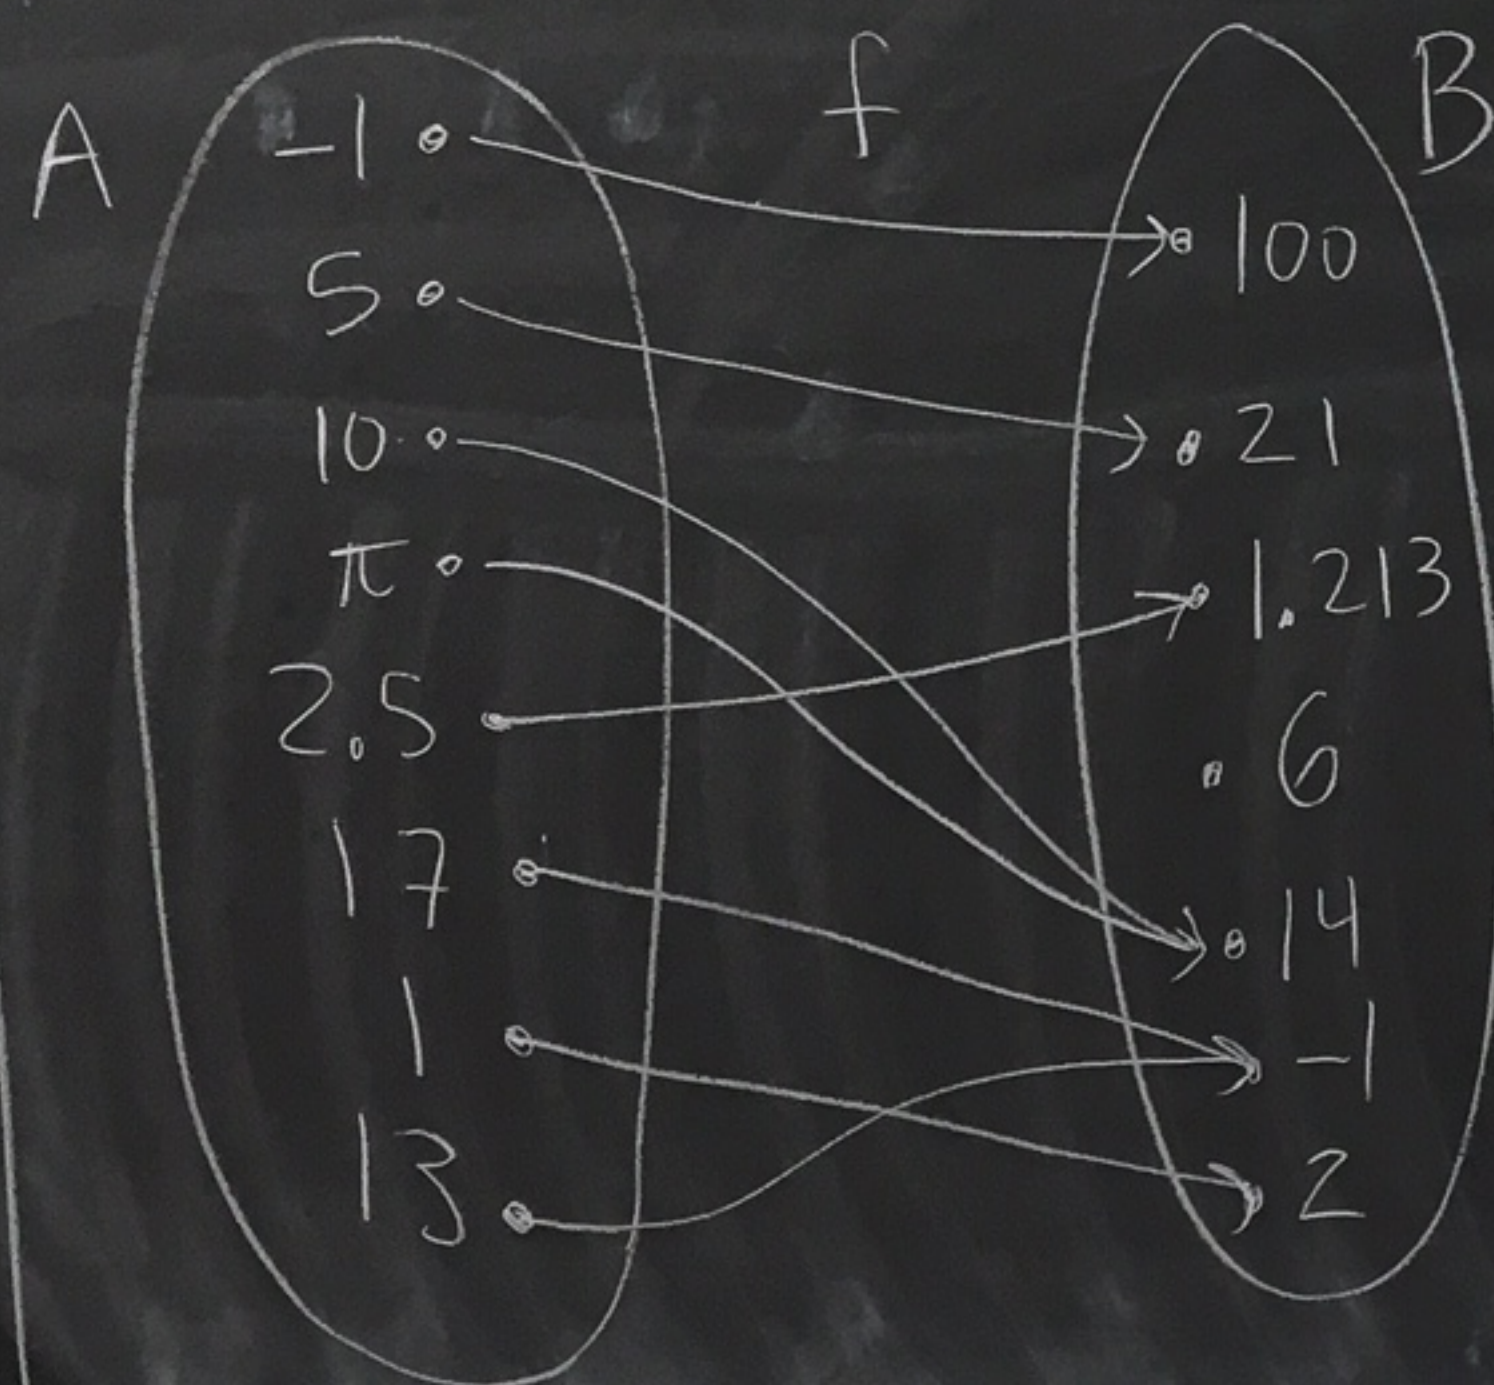 A
f
B
-1
5
10
π
2.5
17
1
13
100
21
1.213
6
14
-1
2